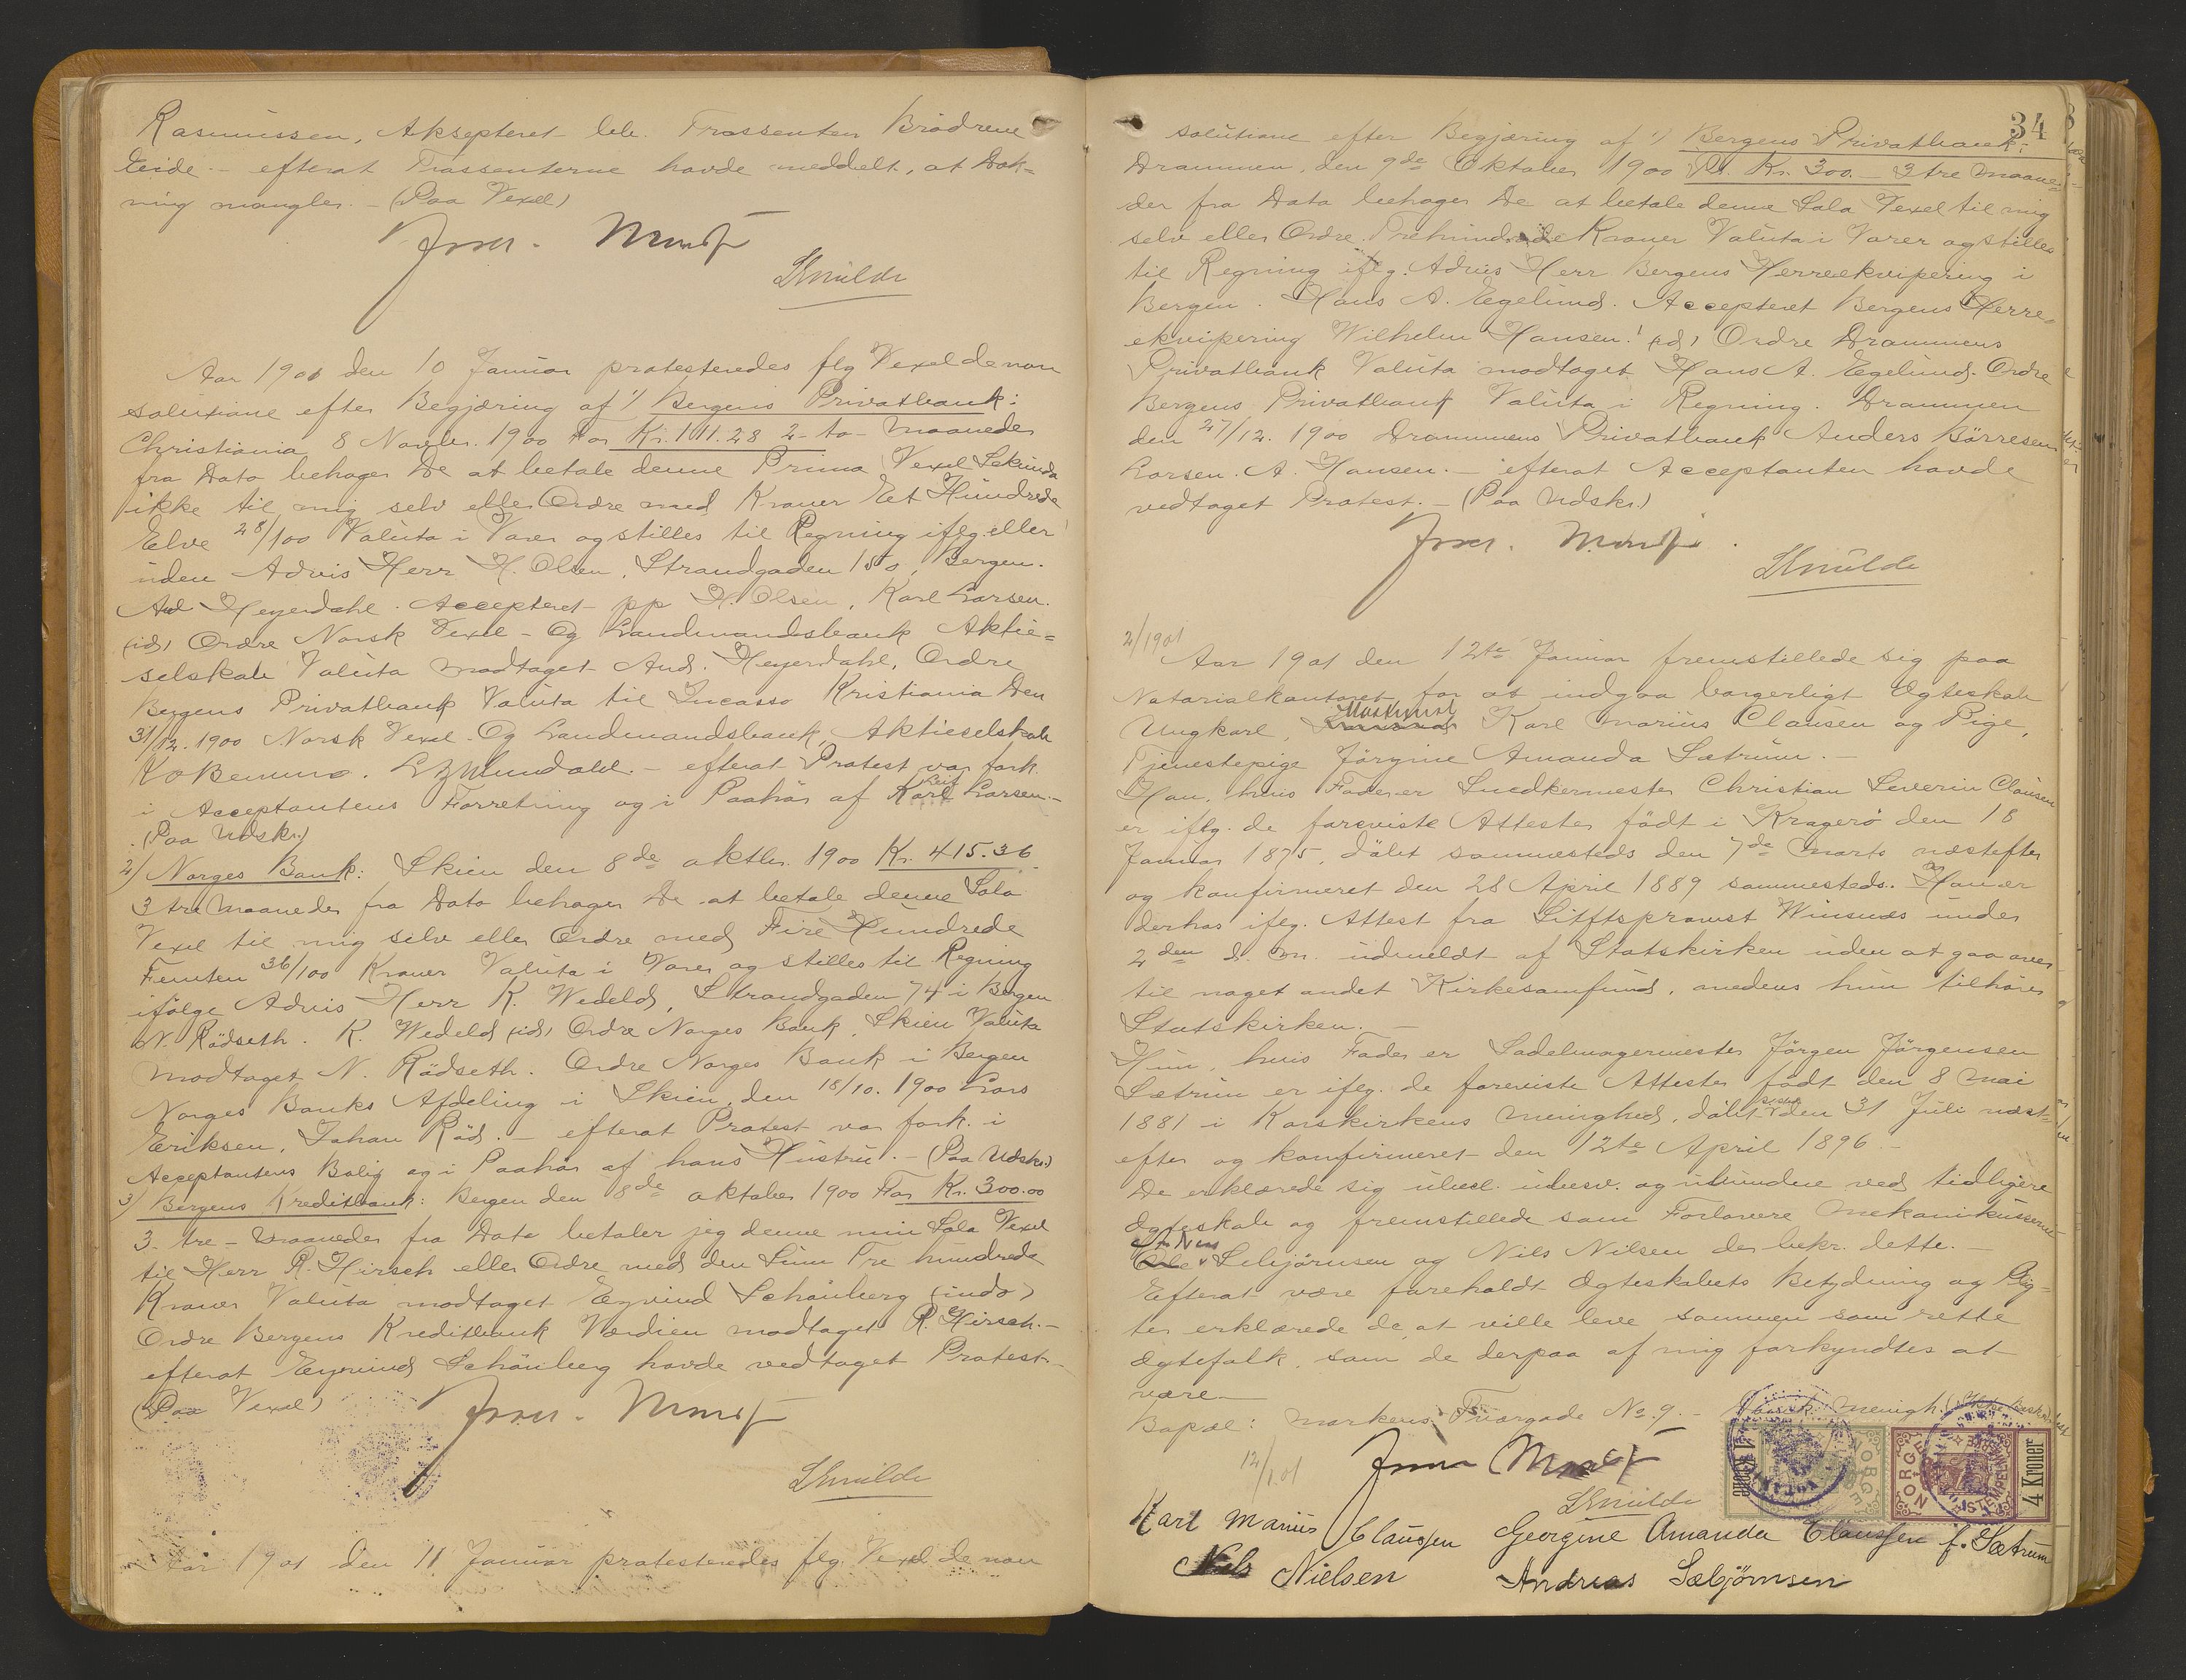 Rasmussen, Aksepteret lib. Trassenten Brødrene
Eeide. - efterat Trassenterne havde meddelt, at Dæk=
ning mangler. - (Paa Vexel)
Knulde
Aar 1901 den 10 Januar protesteredes flg Vexel de non
solutione efter Begjæring af 1/ Bergens Privatbank:
Christiania 8 Novbr. 1900 For Kr. 111.28 2 - to - Maaneder
fra Dato behager De at betale denne Prima Vexel Sekunda
ikke til mig selv eller Ordre med Kroner Et Hundrede
Elve 28/100 Valuta i Varer og stilles til Regning iflg eller
uden Advis Herr H. Olsen, Strandgaden 150, Bergen.
And Heyerdahl. Accepteret pp H. Olsen, Karl Larsen.
(id) Ordre Norsk Vexel - Og Landmandsbank Aktie=
selskab Valuta modtaget And. Heyerdahl, Ordre
Bergens Privatbank Valuta til Incasso Kristiania Den
31/12. 1900 Norsk Vexel - Og Landmandsbank, Aktieselskab
- efterat Protest var fork.
i Acceptantens Forretning og i Paahør af Karl Larsen. -
(Paa Udskr.)
2) Norges Bank: Skien den 8de oktbr. 1900 Kr. 415.36
3 tre Maaneder fra Dato behager De at betale denne Sola
Vexel til mig selv eller Ordre med Fire Hundrede
Femten 36/100 Kroner Valuta i Varer og stilles til Regning
ifølge Advis Herr K. Wedeld, Strandgaden 74 i Bergen
N. Rødseth. K. Wedeld (id) Ordre Norges Bank, Skien Valuta
modtaget N. Rødseth. Ordre Norges Bank i Bergen
Norges Banks Afdeling i Skien, den 18/10. 1900 Lars
Eriksen, Johan Rød. - efterat Protest var fork. i
Acceptantens Bolig og i Paahør af hans Hustru. - (Paa Udskr.)
3) Bergens Kreditbank: Bergen den 8de oktober 1900 For Kr. 300.00
3 - tre - Maaneder fra Dato betaler jeg denne min Sola Vexel
til Herr R. Hirsch eller Ordre med den Sum Tre hundrede
Kroner Valuta modtaget Eyvind Schønberg (indo)
Ordre Bergens Kreditbank Værdien modtaget R. Hirsch. -
efterat Eyvind Schønberg havde vedtaget Protest. -
(Paa Vexel)
Knulde
Aar 1901 den 11 Januar protesteredes flg. Vexel de non
34
solutione efter Begjæring af 1) Bergens Privatbank:
Drammen, den 9de Oktober 1900 Kr. 300. - 3 tre Maane=
der fra Dato behager De at betale denne Sola Vexel til mig
selv eller Ordre Trehundrede Kroner Valuta i Varer og stilles
til Regning iflg. Advis Herr Bergens Herreekvipering i
Bergen. Hans A. Egelund. Accepteret Bergens Herre=
ekvipering Wilhelm Hansen! (id) Ordre Drammens
Privatbank Valuta modtaget Hans A. Egelund. Ordre
Bergens Privatbank Valuta i Regning. Drammen
den 27/12. 1900 Drammens Privatbank Anders Börresen
Larsen. A. Hansen. - efterat Acceptanten havde
vedtaget Protest. - (Paa Udskr.)
Knulde
2/1901
Aar 1901 den 12te Januar fremstillede sig paa
Notarialkontoret for at indgaa borgerligt Ægteskab
Ungkarl, Maskinist Karl Marius Clausen og Pige,
Tjenestepige Jørgine Amanda Sætrum. -
Han, hvis Fader er Snedkermester Christian Severin Clausen
er iflg. de foreviste Attester født i Kragerø den 18
Januar 1875, døbt sammesteds den 7de Marts næstefter
og konfirmeret den 28 April 1889 sammesteds. Han er
derhos iflg. Attest fra Stiftsprovst Winsnes under
2den d. m. udmeldt af Statskirken uden at gaa over
til noget andet Kirkesamfund, medens hun tilhører
Statskirken. -
Hun, hvis Fader er Sadelmagermester Jørgen Jørgensen
Sætrum er iflg. de foreviste Attester født den 8 Mai
1881 i Korskirkens Menighed, døbt den 31 Juli næst=
efter og konfirmeret den 12te April 1896 -
De erklærede sig ubesl. ubesv. og ubundne ved tidligere
Ægteskab og fremstillede som Forlovere Mekanikusserne
Andreas Sebjørnsen og Nils Nilsen der bekr. dette. -
Efterat være foreholdt Ægteskabets Betydning og Plig=
ter erklærede de, at ville leve sammen som rette
Ægtefolk, som de derpaa af mig forkyndtes at
være. -
Bopæl: Markens Tværgade No 9. -
12/1 01
Knulde
1 Krone NORGE NORGE 4 Kroner
Karl Marius Claussen Georgine Amanda Claussen f. Sætrum
Nils Nielsen Andreas Sæbjørnsen